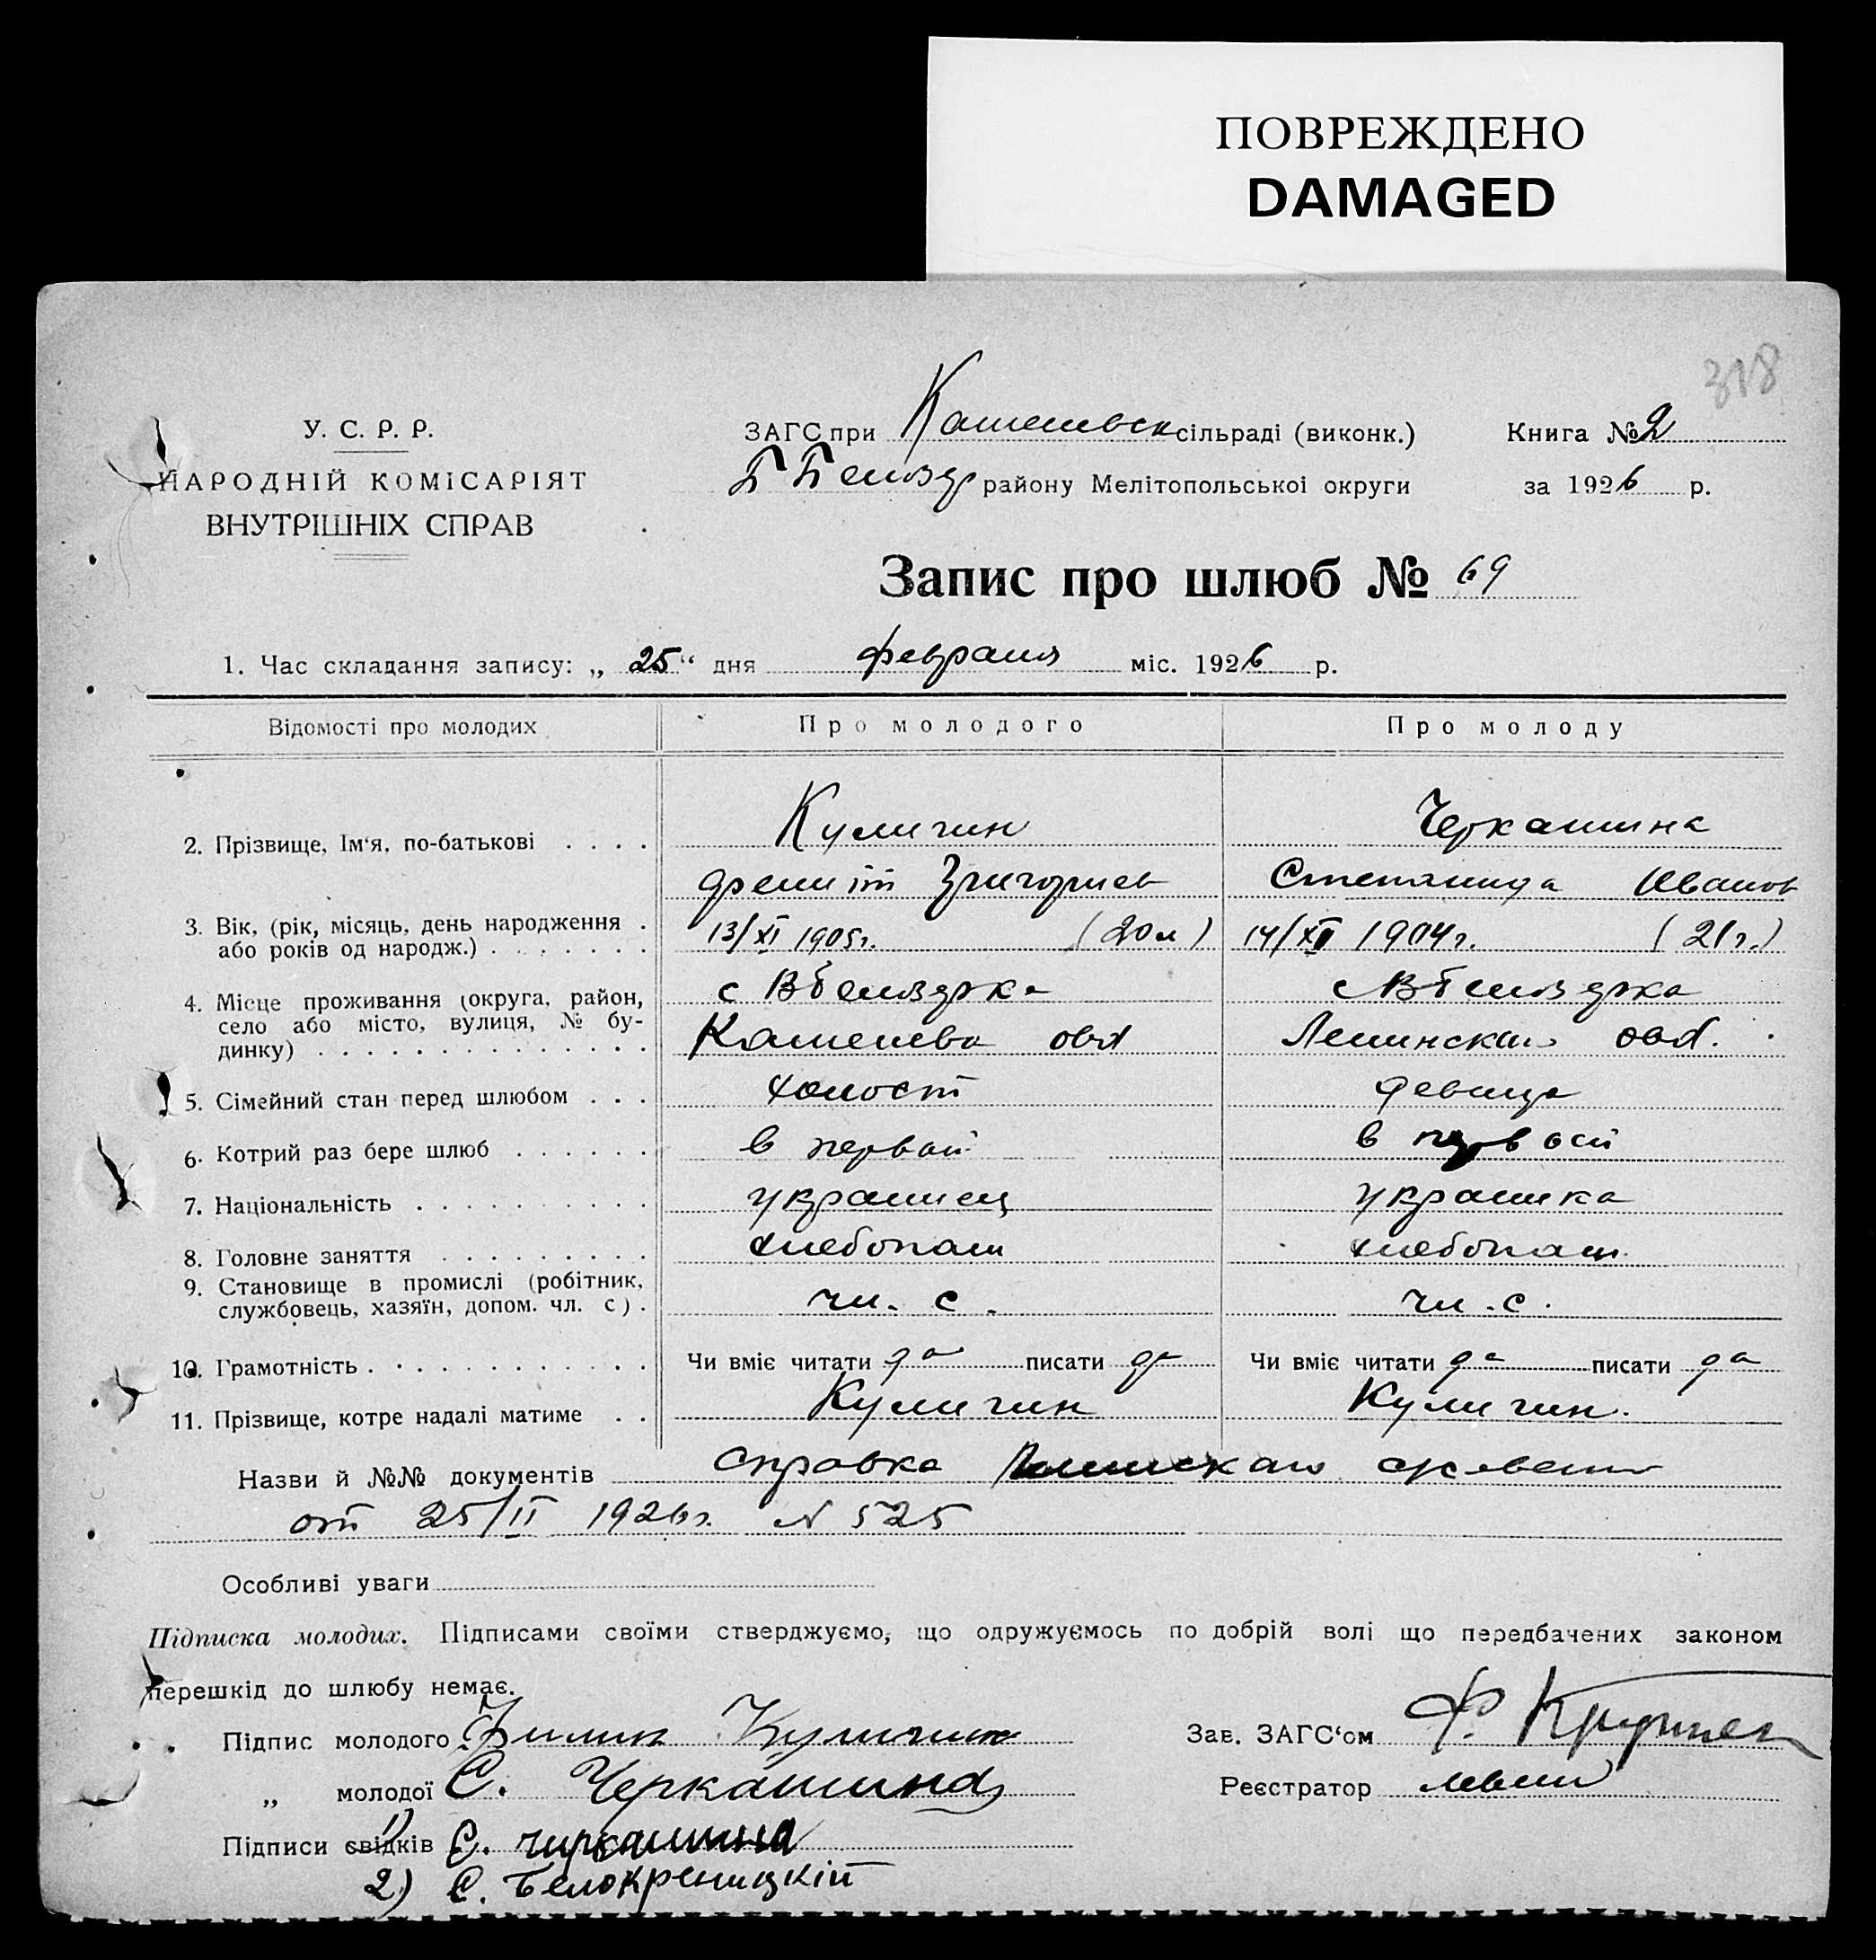 ПОВРЕЖДЕНО
DAMAGED
318
У. С. Р. Р.
НАРОДНІЙ КОМІСАРІЯТ
ВНУТРІШНІХ СПРАВ
ЗАГС при сільраді (виконк.)
Книга № 2
району Мелітопольської округи
за 1926 р.
Запис про шлюб № 69
1. Час складання запису: „ 25 “ дня февраля міс. 1926 р.
Відомості про молодих
Про молодого
Про молоду
2. Прізвище, Ім‘я, по-батькові . . . .
Куличин
Черкашина
Григориев
Степанида Иванов
3. Вік, (рік, місяць, день народження .
або років од народж.) . . . . . . .
13/XI 1905г. (20 л)
14/XII 1904г. (21 г.)
4. Місце проживання (округа, район,
село або місто, вулиця, № бу-
динку) . . . . . . . . . . . . . .
с Вбелозерка
с Вбелозерка
Каменева
Ленинская
5. Сімейний стан перед шлюбом . . .
холост
девица
6. Котрий раз бере шлюб . . . . . .
в первой
в первой
7. Національність . . . . . . . . . .
украинец
украинка
8. Головне заняття . . . . . . . . .
хлебопаш
хлебопаш.
9. Становище в промислі (робітник,
службовець, хазяїн, допом. чл. с) .
чл. с.
чл. с.
10. Грамотність . . . . . . . . . . . .
Чи вміє читати да писати да
Чи вміє читати да писати да
11. Прізвище, котре надалі матиме . .
Куличин
Куличин.
Назви й №№ документів справка
от 25/II 1926г. N 525
Особливі уваги
Підписка молодих. Підписами своїми стверджуємо, що одружуємось по добрій волі що передбачених законом
перешкід до шлюбу немає.
Підпис молодого Куличин
Зав. ЗАГС‘ом Ф.
„ молодої С. Черкашина
Реєстратор
Підписи свідків 1) Е. чиркашина
2) С. Белокреницкій